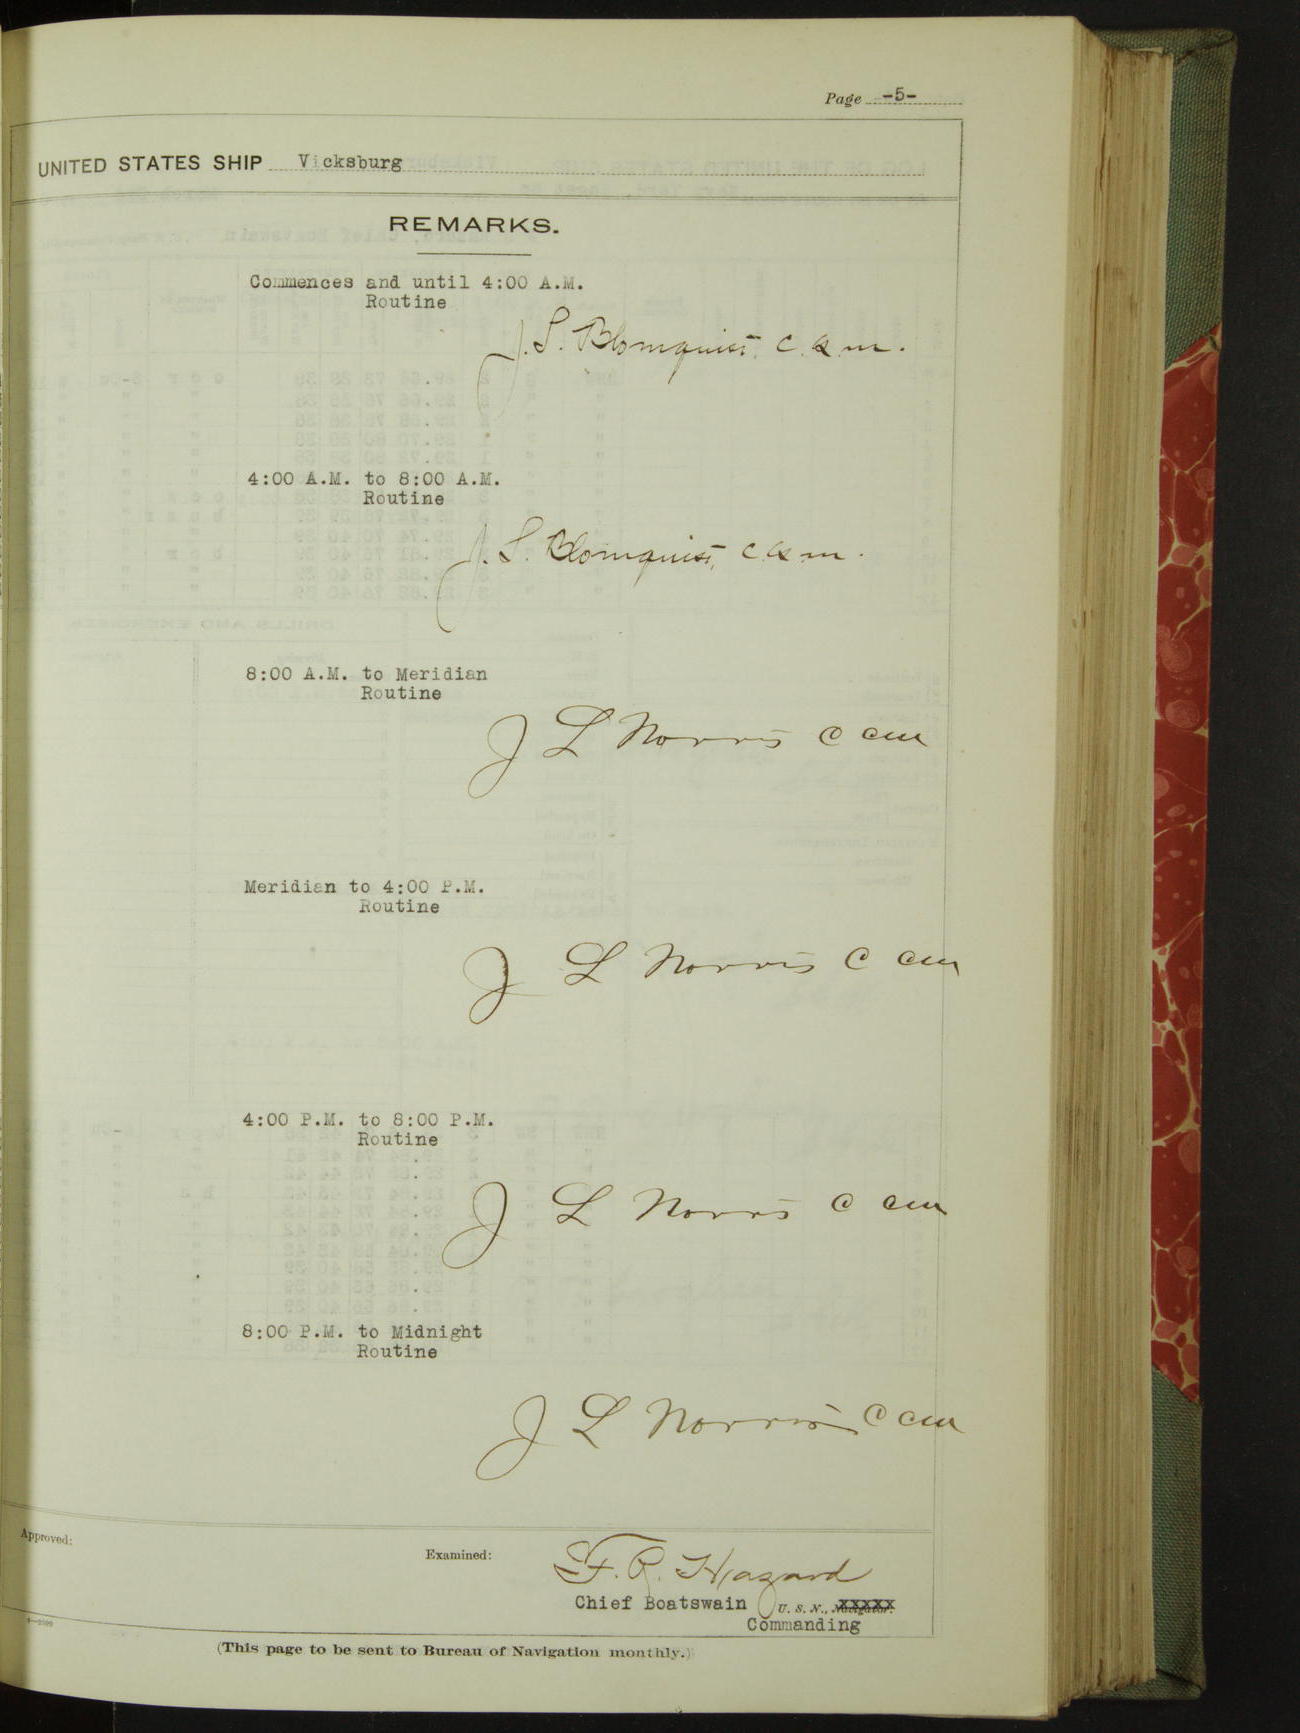 Page -5-
UNITED STATES SHIP Vicksburg
REMARKS.
Commences and until 4:00 A.M.
Routine
J. S. Blomquist, c.g.m.
4:00 A.M. to 8:00 A.M.
Routine
J. S. Blomquist, c.g.m.
8:00 A.M. to Meridian
Routine
J L Norris C CM
Meridian to 4:00 P.M.
Routine
J L Norris C CM
4:00 P.M. to 8:00 P.M.
Routine
J L Norris C CM
8:00 P.M. to Midnight
Routine
J L Norris C CM
Approved:
Examined:
F. R. Hazard
Chief Boatswain U. S. N., Navigator.
Commanding
(This page to be sent to Bureau of Navigation monthly.)